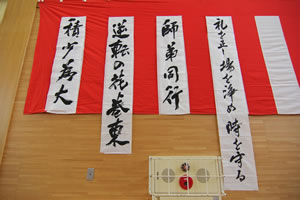 礼を正し 場を浄め 時を守る
師弟同行
逆転の花巻東
積少為大